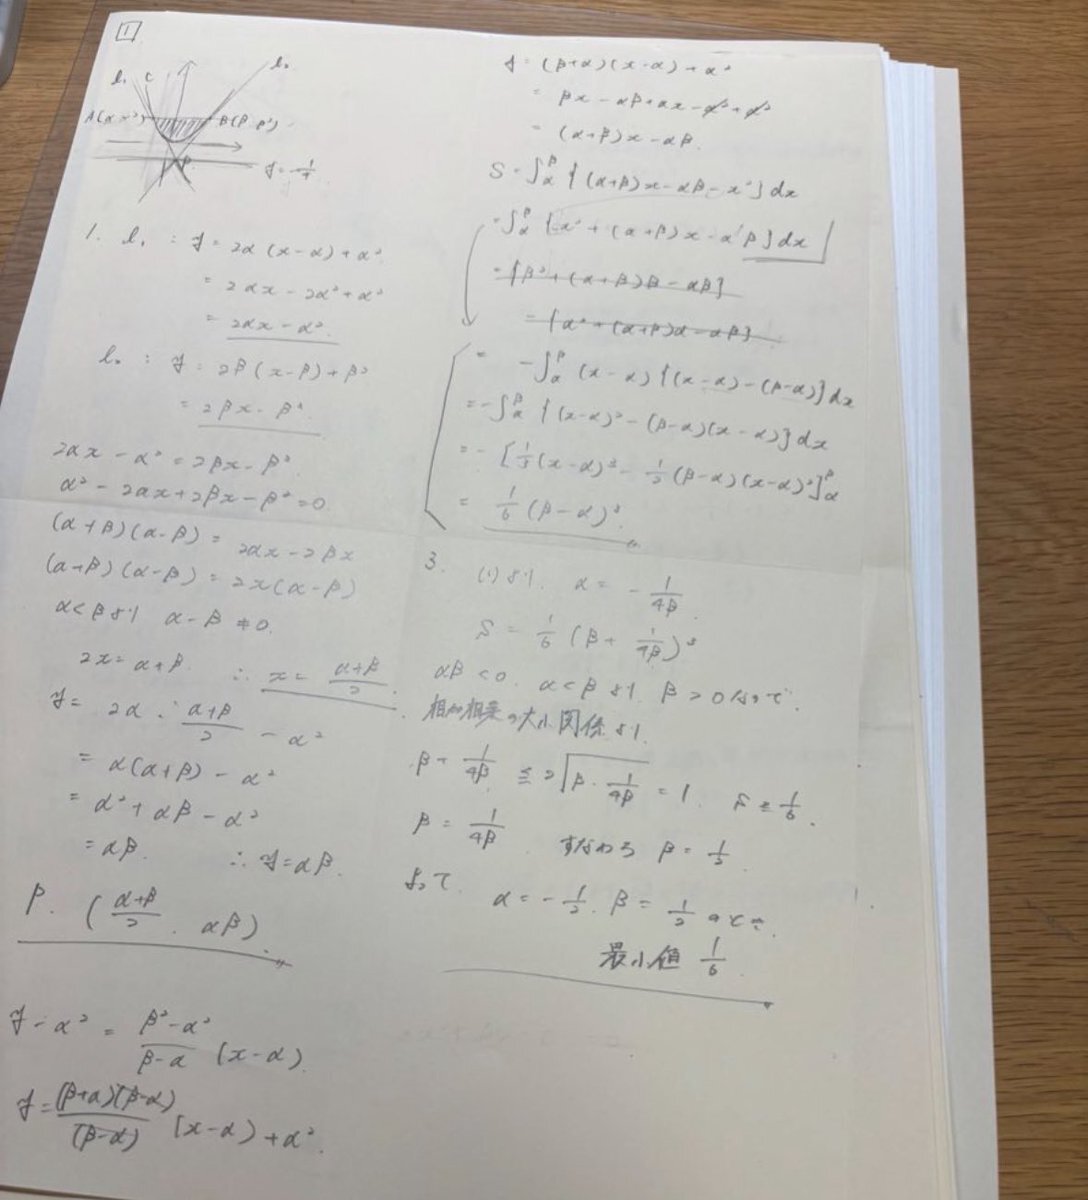 1
l₁ C l₂
A(α, α²) B(β, β²)
P
y = -1/4
1. l₁ : y = 2α(x-α)+α²
= 2αx - 2α² + α²
= 2αx - α²
l₂ : y = 2β(x-β)+β²
= 2βx - β²
2αx - α² = 2βx - β²
α² - 2αx + 2βx - β² = 0
(α+β)(α-β) = 2αx - 2βx
(α+β)(α-β) = 2x(α-β)
α<βより α-β≠0
2x = α+β ∴ x = (α+β)/2
y = 2α · (α+β)/2 - α²
= α(α+β) - α²
= α² + αβ - α²
= αβ. ∴ y = αβ.
P. ((α+β)/2, αβ)
y - α² = (β²-α²)/(β-α) (x-α)
y = (β+α)(β-α)/(β-α) (x-α) + α²
y = (β+α)(x-α)+α²
= βx - αβ + αx - α² + α²
= (α+β)x - αβ
S = ∫_α^β {(α+β)x - αβ - x²}dx
= ∫_α^β {-x² + (α+β)x - αβ}dx
= {β² + (α+β)β - αβ}
= {α² + (α+β)α - αβ}
= -∫_α^β (x-α){(x-α)-(β-α)}dx
= -∫_α^β {(x-α)² - (β-α)(x-α)}dx
= -[1/3(x-α)³ - 1/2(β-α)(x-α)²]_α^β
= 1/6(β-α)³
3. (1)より. α = -1/4β
S = 1/6(β + 1/4β)³
αβ<0. α<βより. β>0なので
相加相乗の大小関係より.
β + 1/4β ≧ 2√(β·1/4β) = 1. S ≧ 1/6.
β = 1/4β すなわち β = 1/2
よって
α = -1/2. β = 1/2 のとき.
最小値 1/6